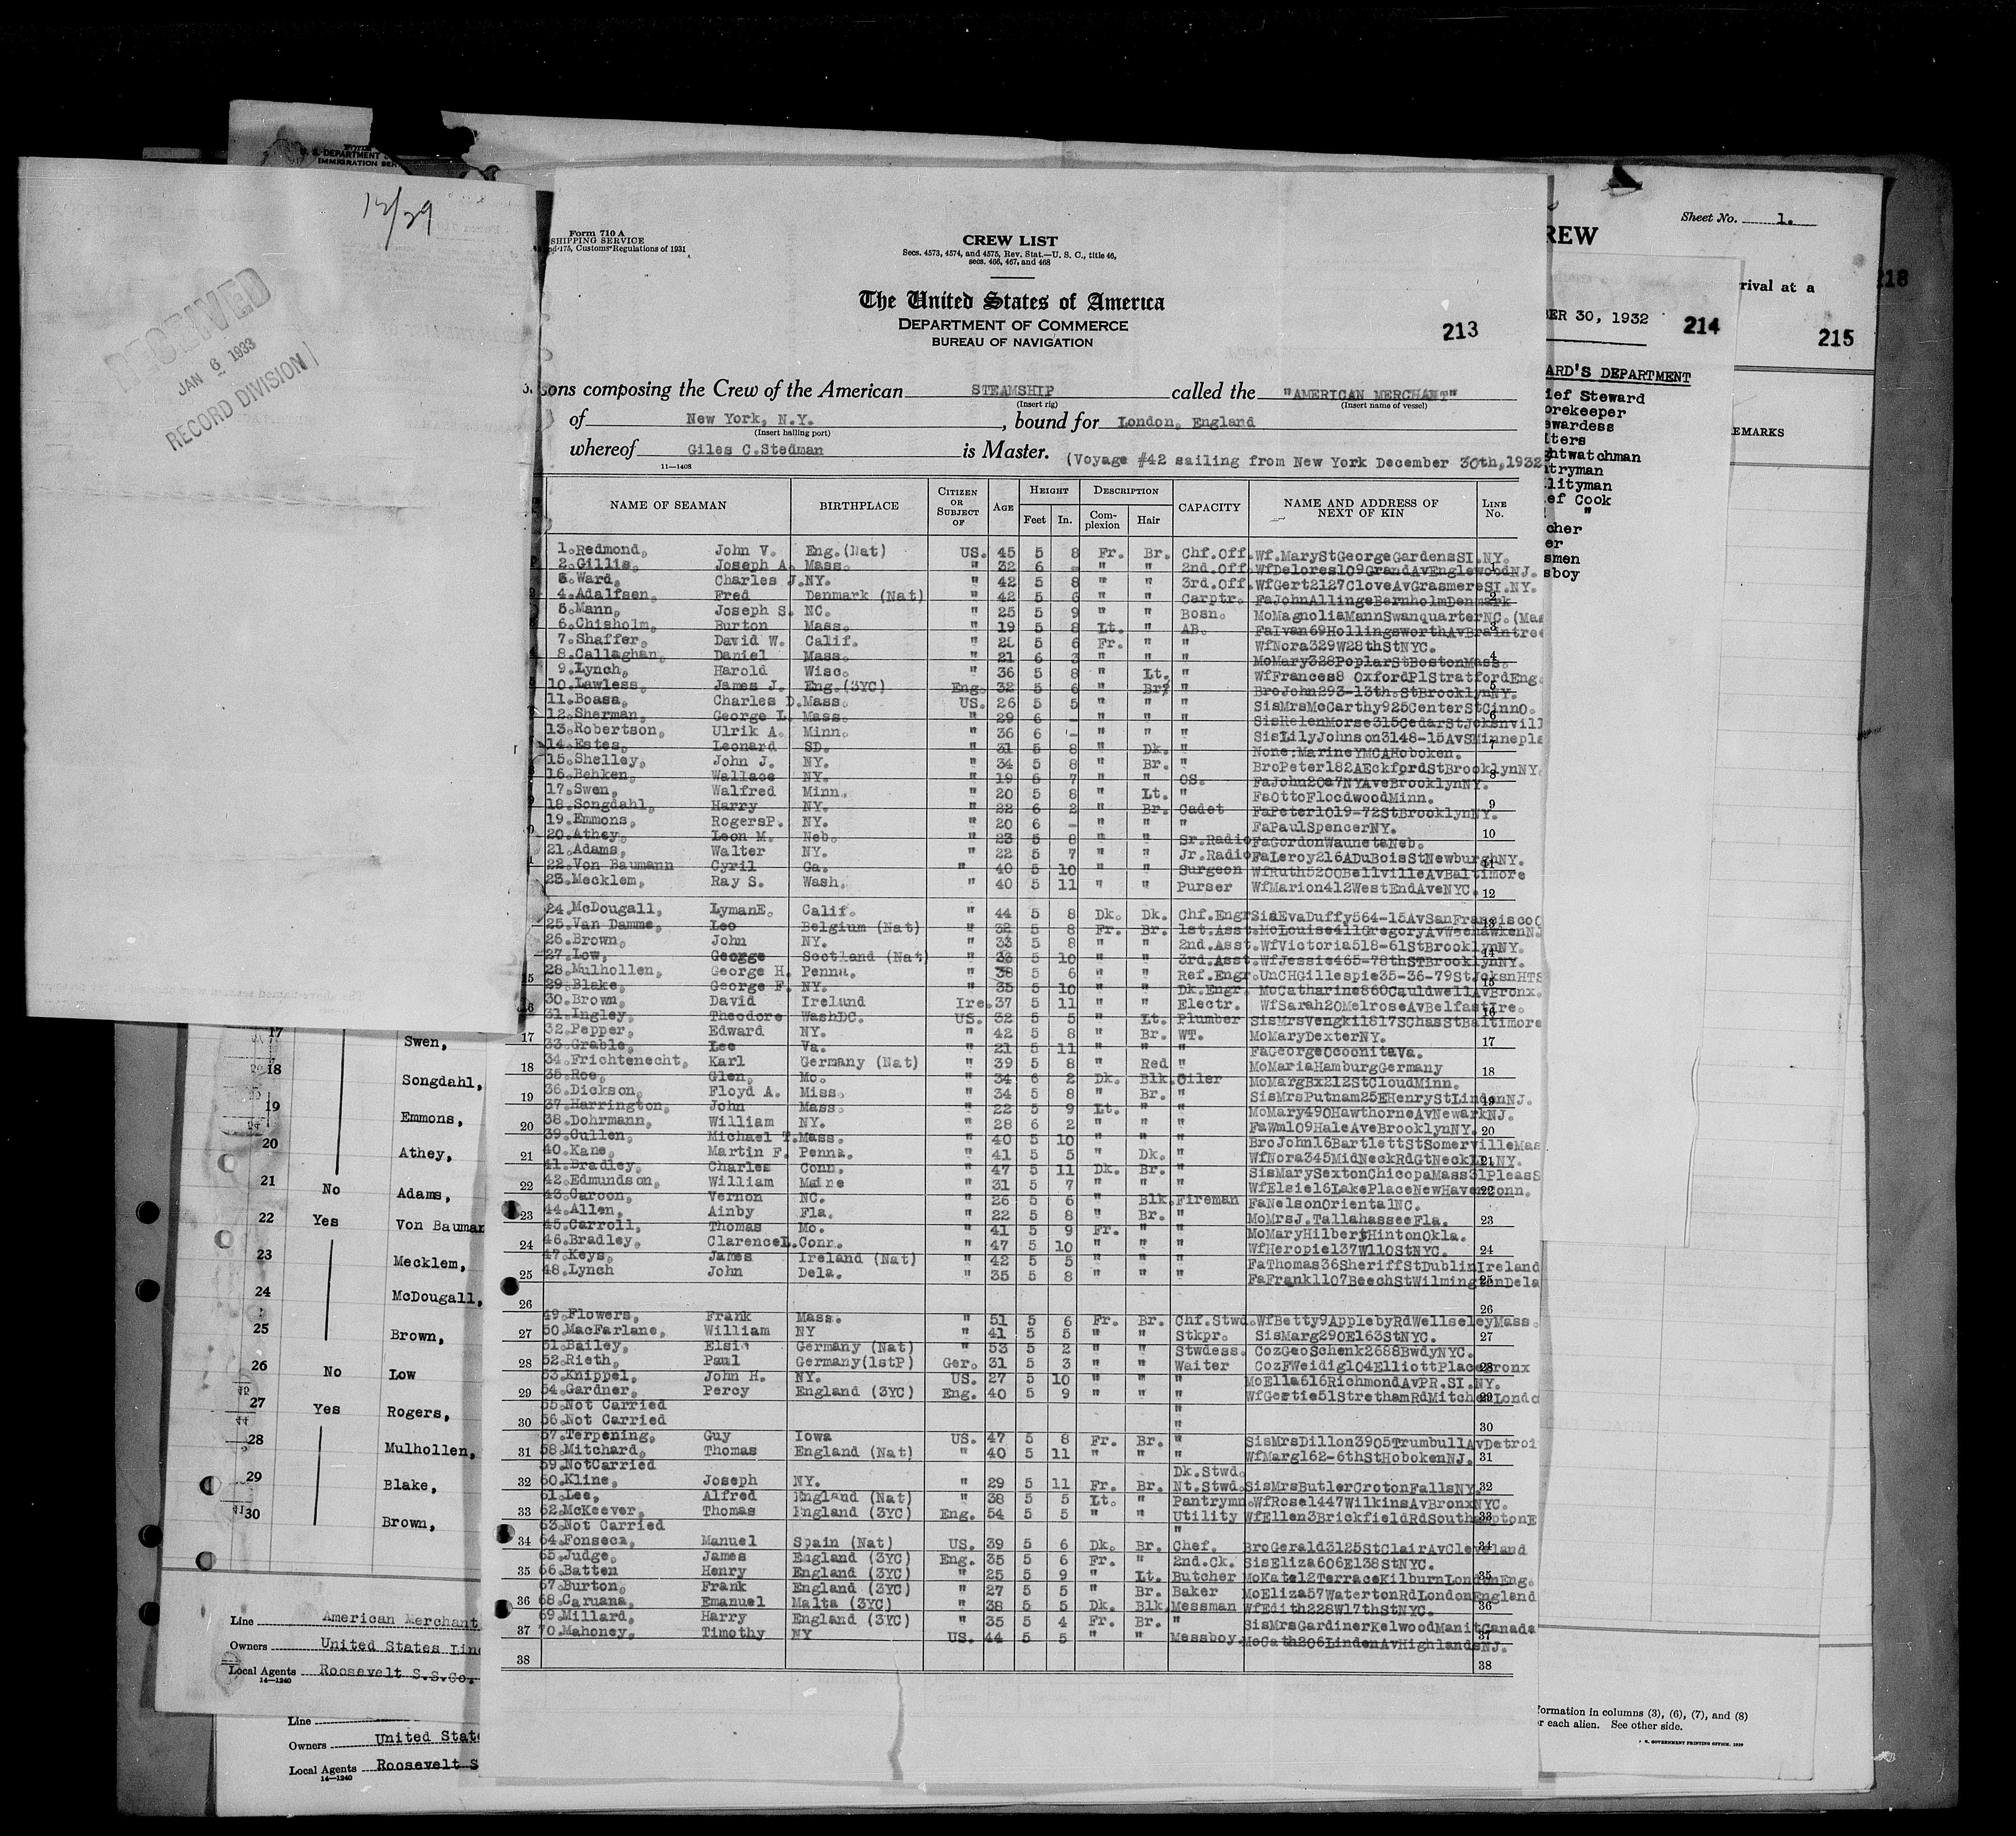 12/29
RECEIVED
JAN 6 1933
RECORD DIVISION
U. S. DEPARTMENT
IMMIGRATION SER
Form 710 A
SHIPPING SERVICE
175, Customs Regulations of 1931
CREW LIST
Secs. 4573, 4574, and 4575, Rev. Stat.—U. S. C., title 46,
secs. 466, 467, and 468
The United States of America
DEPARTMENT OF COMMERCE
BUREAU OF NAVIGATION
213
ons composing the Crew of the American STEAMSHIP called the "AMERICAN MERCHANT"
(Insert rig) (Insert name of vessel)
of New York, N.Y. , bound for London, England
(Insert hailing port)
whereof Giles C.Stedman is Master. (Voyage #42 sailing from New York December 30th,1932
11—1408
NAME OF SEAMAN BIRTHPLACE CITIZEN OR SUBJECT OF AGE HEIGHT Feet In. DESCRIPTION Complexion Hair CAPACITY NAME AND ADDRESS OF NEXT OF KIN LINE No.
1.Redmond, John V. Eng.(Nat) US. 45 5 8 Fr. Br. Chf.Off. Wf.MaryStGeorgeGardensSI.NY.
2.Gillis, Joseph A. Mass. " 32 6 - " " 2nd.Off. WfDelores109GrandAvEnglewoodNJ.
3.Ward, Charles J. NY. " 42 5 8 " " 3rd.Off. WfGert2127CloveAvGrasmereSI.NY.
4.Adalfsen, Fred Denmark (Nat) " 42 5 6 " " Carptr. FaJohnAllingeBernholmDenmark
5.Mann, Joseph S. NC. " 25 5 9 " " Bosn. MoMagnoliaMannSwanquarterNC.(Mas
6.Chisholm, Burton Mass. " 19 5 8 Lt. " AB. FaIvan69HollingsworthAvBraintree
7.Shaffer, David W. Calif. " 28 5 6 Fr. " " WfNora329W28thStNYC.
8.Callaghan, Daniel Mass. " 21 6 3 " " " MoMary328PoplarStBostonMass.
9.Lynch, Harold Wisc. " 36 5 8 " Lt. " WfFrances8 OxfordPlStratfordEng.
10.Lawless, James J. Eng.(3YC) Eng. 32 5 6 " Br. " BroJohn293-13th.StBrooklynNY.
11.Boasa, Charles D. Mass. US. 26 5 5 " " " SisMrsMcCarthy925CenterStCinnO.
12.Sherman, George L. Mass. " 29 6 - " " " SisHelenMorse315CedarStJcksnvill
13.Robertson, Ulrik A. Minn. " 36 6 - " " " SisLilyJohnson3148-15AvSMinnepla
14.Estes, Leonard SD. " 31 5 8 " Dk. " None:MarineYMCAHoboken.
15.Shelley, John J. NY. " 34 5 8 " Br. " BroPeter182AEckfordStBrooklynNY.
16.Behken, Wallace NY. " 19 5 7 " " OS. FaJohn20a7NYAveBrooklynNY.
17.Swen, Walfred Minn. " 20 5 8 " Lt. " FaOttoFloodwoodMinn.
18.Songdahl, Harry NY. " 22 6 2 " Br. Cadet FaPeter1019-72StBrooklynNY.
19.Emmons, RogersP. NY. " 20 6 - " " " FaPaulSpencerNY.
20.Athey, Leon M. Neb. " 23 5 8 " " Sr.Radio FaGordonWaunetaNeb.
21.Adams, Walter NY. " 22 5 7 " " Jr.Radio FaLeroy216ADuBoisStNewburghNY.
22.Von Baumann Cyril Ga. " 40 5 10 " " Surgeon WfRuth5200BellvilleAvBaltimore
23.Mecklem, Ray S. Wash. " 40 5 11 " " Purser WfMarion412WestEndAveNYC.
24.McDougall, LymanE. Calif. " 44 5 8 Dk. Dk. Chf.Engr SisEvaDuffy564-15AvSanFranciscoC
25.Van Damme, Leo Belgium (Nat) " 32 5 8 Fr. Br. 1st.Asst. McLouise411GregoryAvWeehawkenNJ
26.Brown, John NY. " 33 5 8 " " 2nd.Asst. WfVictoria518-61StBrooklynNY.
27.Low, George Scotland (Nat) " 33 5 10 " " 3rd.Asst. WfJessie465-78thSTBrooklynNY.
28.Mulhollen, George H. Penna. " 38 5 6 " " Ref.Engr. UnCHGillespie35-36-79StJcksnHTS
29.Blake, George F. NY. " 35 5 10 " " Dk.Engr. MoCatharine860CauldwellAvBronx.
30.Brown, David Ireland Ire. 37 5 11 " " Electr. WfSarah20MelroseAvBelfastIre.
31.Ingley, Theodore WashDC. US. 32 5 5 " Lt. Plumber SisMrsVengkil817SChasStBaltimore
32.Pepper, Edward NY. " 42 5 8 " Br. WT. MoMaryDexterNY.
33.Grable, Lee Va. " 21 5 11 " " " FaGeorgeOcoonitaVa.
34.Frichtenecht, Karl Germany (Nat) " 39 5 8 " Red " MoMariaHamburgGermany
35.Roe, Glen, Mo. " 34 6 2 Dk. Blk. Oiler MoMargBx212StCloudMinn.
36.Dickson, Floyd A. Miss. " 34 5 8 " Br. " SisMrsPutnam25EHenryStLindenNJ.
37.Harrington, John Mass. " 22 5 9 Lt. " " MoMary490HawthorneAvNewarkNJ.
38.Dohrmann, William NY. " 28 6 2 " " " FaWm109HaleAveBrooklynNY.
39.Cullen, Michael T. Mass. " 40 5 10 " " " BroJohn16BartlettStSomervilleMas
40.Kane, Martin F. Penna. " 41 5 5 " Dk. " WfNora345MidNeckRdGtNeckLI.NY.
41.Bradley, Charles Conn. " 47 5 11 Dk. Br. " SisMarySextonChicopaMass31PleasS
42.Edmundson, William Maine " 31 5 7 " " " WfElsie16LakePlaceNewHavenConn.
43.Caroon, Vernon NC. " 26 5 6 " Blk. Fireman FaNelsonOrientalNC.
44.Allen, Ainby Fla. " 22 5 8 " Br. " MoMrsJ.TallahasseeFla.
45.Carroll, Thomas Mo. " 41 5 9 Fr. " " MoMaryHilbertHintonOkla.
46.Bradley, ClarenceL. Conn. " 47 5 10 " " " WfHeropie137W110StNYC.
47.Keys, James Ireland (Nat) " 42 5 5 " " " FaThomas36SheriffStDublinIreland
48.Lynch John Dela. " 35 5 8 " " " FaFrank1107BeechStWilmingtonDela
49.Flowers, Frank Mass. " 51 5 6 Fr. Br. Chf.Stwd. WfBetty9ApplebyRdWellseleyMass.
50.MacFarlane, William NY " 41 5 5 " " Stkpr. SisMarg290E163StNYC.
51.Bailey, Elsie Germany (Nat) " 53 5 2 " " Stwdess. CozGeoSchenk2688BwdyNYC.
52.Rieth, Paul Germany(1stP) Ger. 31 5 3 " " Waiter CozFWeidig104ElliottPlaceBronx
53.Knippel, John H. NY. US. 27 5 10 " " " MoElla616RichmondAvPR.SI.NY.
54.Gardner, Percy England (3YC) Eng. 40 5 9 " " " WfGertie51StrethamRdMitchemLondo
55.Not Carried "
56.Not Carried "
57.Terpening, Guy Iowa US. 47 5 8 Fr. Br. " SisMrsDillon3905TrumbullAvDetroi
58.Mitchard, Thomas England (Nat) " 40 5 11 " " " WfMarg162-6thStHobokenNJ.
59.NotCarried Dk.Stwd.
60.Kline, Joseph NY. " 29 5 11 Fr. Br. Nt.Stwd. SisMrsButlerCrotonFallsNY.
61.Lee, Alfred England (Nat) " 38 5 5 Lt. " Pantrymn. WfRose1447WilkinsAvBronxNYC.
62.McKeever, Thomas England (3YC) Eng. 54 5 5 " " Utility WfEllen3BrickfieldRdSouthamptonE
63.Not Carried "
64.Fonseca, Manuel Spain (Nat) US. 39 5 6 Dk. Br. Chef. BroGerald3125StClairAvCleveland
65.Judge, James England (3YC) Eng. 35 5 6 Fr. " 2nd.Ck. SisEliza606E138StNYC.
66.Batten Henry England (3YC) " 25 5 9 " Lt. Butcher MoKate12TerraceKilburnLondonEng.
67.Burton, Frank England (3YC) " 27 5 5 " Br. Baker MoEliza57WatertonRdLondonEngland
68.Caruana, Emanuel Malta (3YC) " 38 5 5 Dk. Blk. Messman WfEdith228W17thStNYC.
69.Millard, Harry England (3YC) " 35 5 4 Fr. Br. " SisMrsGardinerKelwoodManitCanada
70.Mahoney, Timothy NY US. 44 5 5 " " Messboy. McCath206LindenAvHighlandsNJ.
38 38
17 Swen,
18 Songdahl,
19 Emmons,
20 Athey,
21 No Adams,
22 Yes Von Bauman
23 Mecklem,
24 McDougall,
25 Brown,
26 No Low
27 Yes Rogers,
28 Mulhollen,
29 Blake,
30 Brown,
Line American Merchant
Owners United States Lin
Local Agents Roosevelt S.S.Co.
14—1240
Line
Owners United State
Local Agents Roosevelt S
14—1240
Sheet No. 1.
REW
rival at a
218
BER 30, 1932
214
215
ARD'S DEPARTMENT
EMARKS
ief Steward
orekeeper
ewardess
iters
ghtwatchman
ntryman
ilityman
ief Cook
"
cher
er
smen
sboy
formation in columns (3), (6), (7), and (8)
or each alien. See other side.
U. S. GOVERNMENT PRINTING OFFICE. 1929